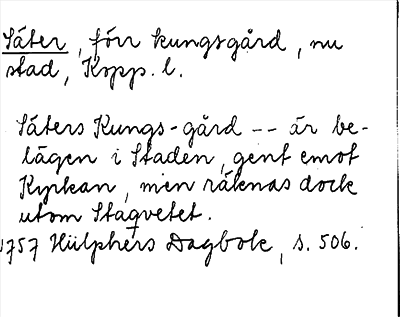 Säter, förr kungsgård, nu
stad, Kopp. l.
Säters Kungs-gård -- är be-
lägen i Staden, gent emot
Kyrkan, men räknas dock
utom Staqvetet.
1757 Hülphers Dagbok, s. 506.